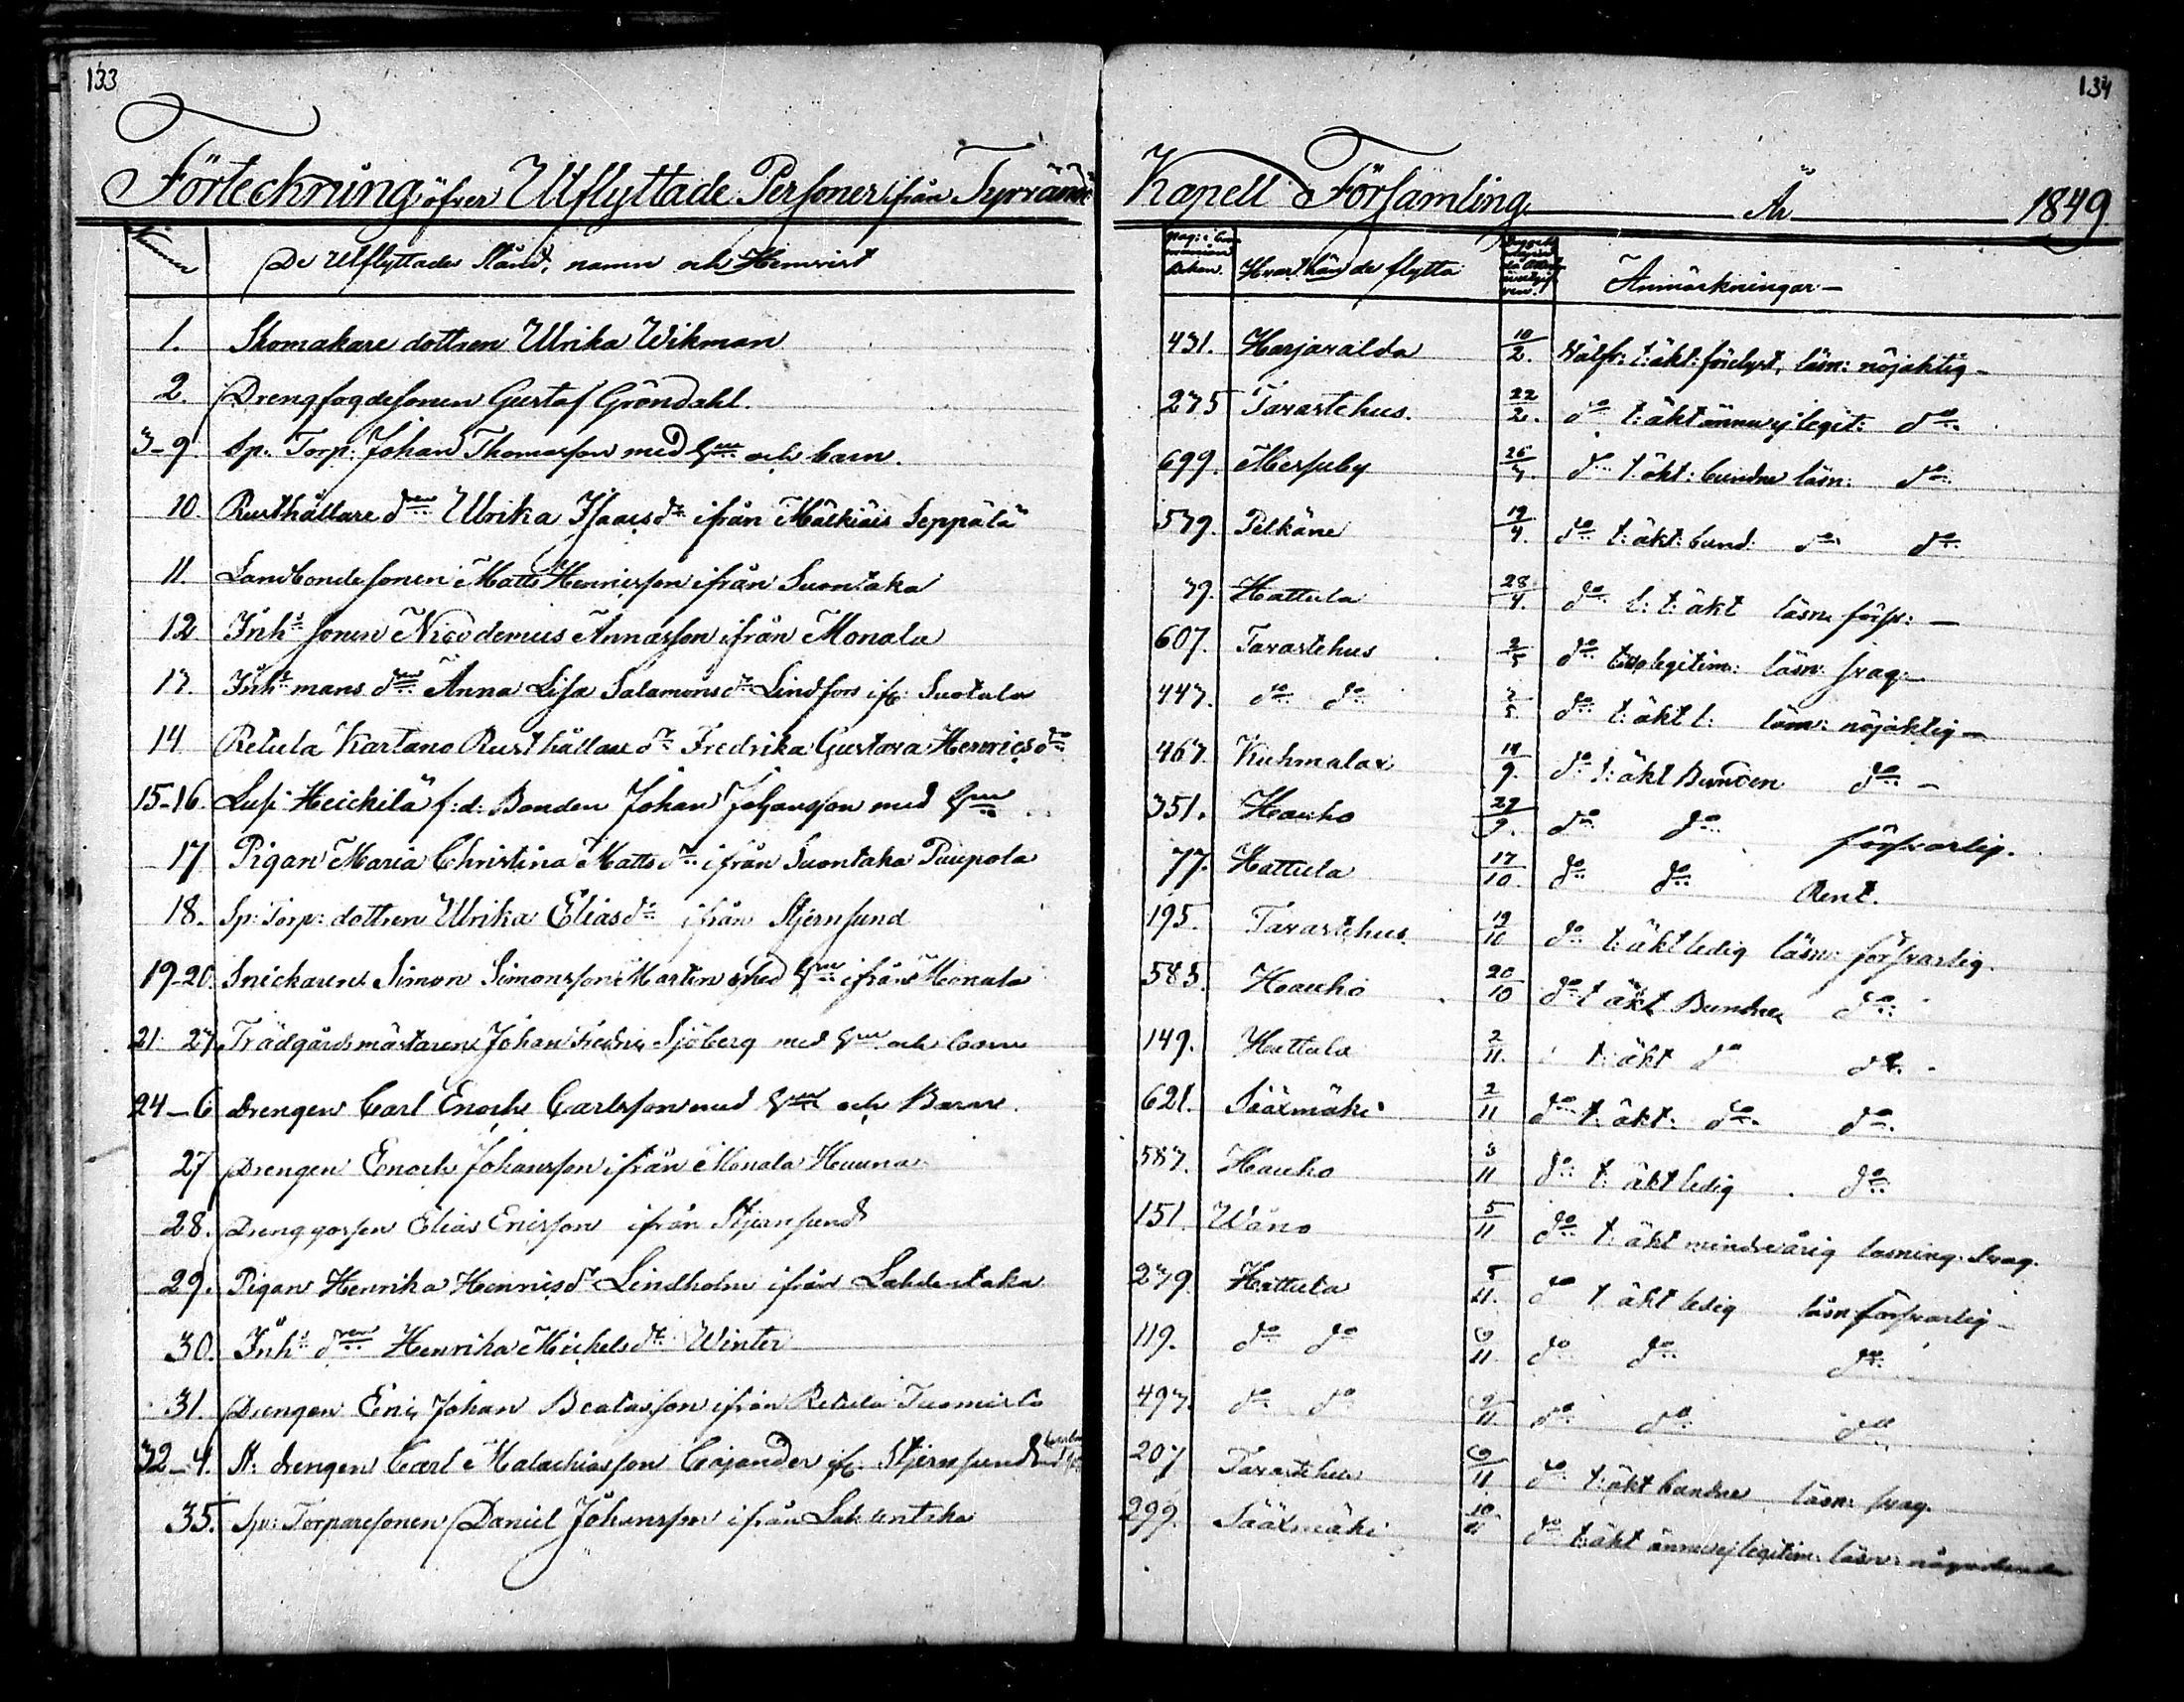 133
134
Förteckning öfver Utflyttade Personer ifrån Tyrvändö Kapell Församling År 1849
De Utflyttades Stånd, namn och Hemvist
Hvarthän de flytta
Anmärkningar
1. Skomakare dottren Ulrika Wikman 431. Harjavalda 10/2. Välfr: t: äkt: förelyst, läsn: nöjaktig
2. Drengfogdesonen Gustaf Gröndahl. 275 Tavastehus. 22/2. d:o t: äkt ännu ej legit: d:o
3-9. Sp: Torp: Johan Thomasson med h:u och barn. 699. Messuby 26/3. d:o t: äkt: bundne läsn: d:o
10. Rusthållare d:ren Ulrika Isaacsd:r ifrån Mälkiäis Seppälä 579. Pelkäne 19/4. d:o t: äkt: bund. d:o d:o
11. Landbondesonen Matts Henricsson ifrån Suontaka 39. Hattula 28/4. d:o l: t: äkt läsn: förs:
12. Inh:s sonen Nicodemus Annasson ifrån Monala 607. Tavastehus 2/5 d:o legitim: läsn: svag.
13. Inh:s mans d:ren Anna Lisa Salamonsd:r Lindfors ifr: Suotala 443. d:o d:o 2/5. d:o t: äkt l: läsn: nöjaktig
14 Retula Kartano Rusthållare d:r Fredrika Gustava Henricsd:r 463. Kuhmalax 19/9. d:o t: äkt Bunden d:o
15-16. Lusi Heickilä f: d: Bonden Johan Johansson med h:u 351. Hauho 29/9. d:o d:o försvarlig.
17 Pigan Maria Christina Mattsd:r ifrån Suontaka Puupola 77. Hattula 17/10. d:o d:o Rent.
18. Sp: Torp: dottren Ulrika Eliasd:r ifrån Stjernsund 195. Tavastehus. 19/10 d:o t: äkt ledig läsn: försvarlig.
19-20. Snickaren Simon Simonsson Martin med h:u ifrån Monala 585. Hauho 20/10 d:o t: äkt Bundne d:o
21-23. Trädgårdsmästaren Johan Fredric Sjöberg med h:u och barn 149. Hattula 2/11. t: äkt d:o d:o
24-6 Drengen Carl Enoch Carlsson med h:u och Barn. 621. Sääxmäki 2/11 d:o t: äkt: d:o d:o
27 Drengen Enoch Johansson ifrån Monala Huuna 587. Hauho 3/11 d:o t: äkt ledig d:o
28. Drenggossen Elias Ericsson ifrån Stjernsund 151. Wåno 5/11 d:o t: äkt minderårig läsning. svag.
29. Pigan Henrika Henricsd:r Lindholm ifrån Lahdentaka 239. Hattula 5/11. d:o t: äkt ledig läsn: försvarlig
30. Inh:s d:ren Henrika Michelsd:r Winter 119. d:o d:o 6/11. d:o d:o d:o
31. Drengen Eric Johan Beatasson ifrån Retula Tuomisto 493. d:o d:o 9/11. d:o d:o d:o
32-4. St: drengen Carl Malachiasson Cajander ifr: Stjernsund 207 Tavastehus 9/11 d:o t: äkt bundne läsn: svag.
35. Sp: Torparesonen Daniel Johansson ifrån Lahdentaka 299. Sääxmäki 10/11 d:o t: äkt ännu ej legitim: läsn: